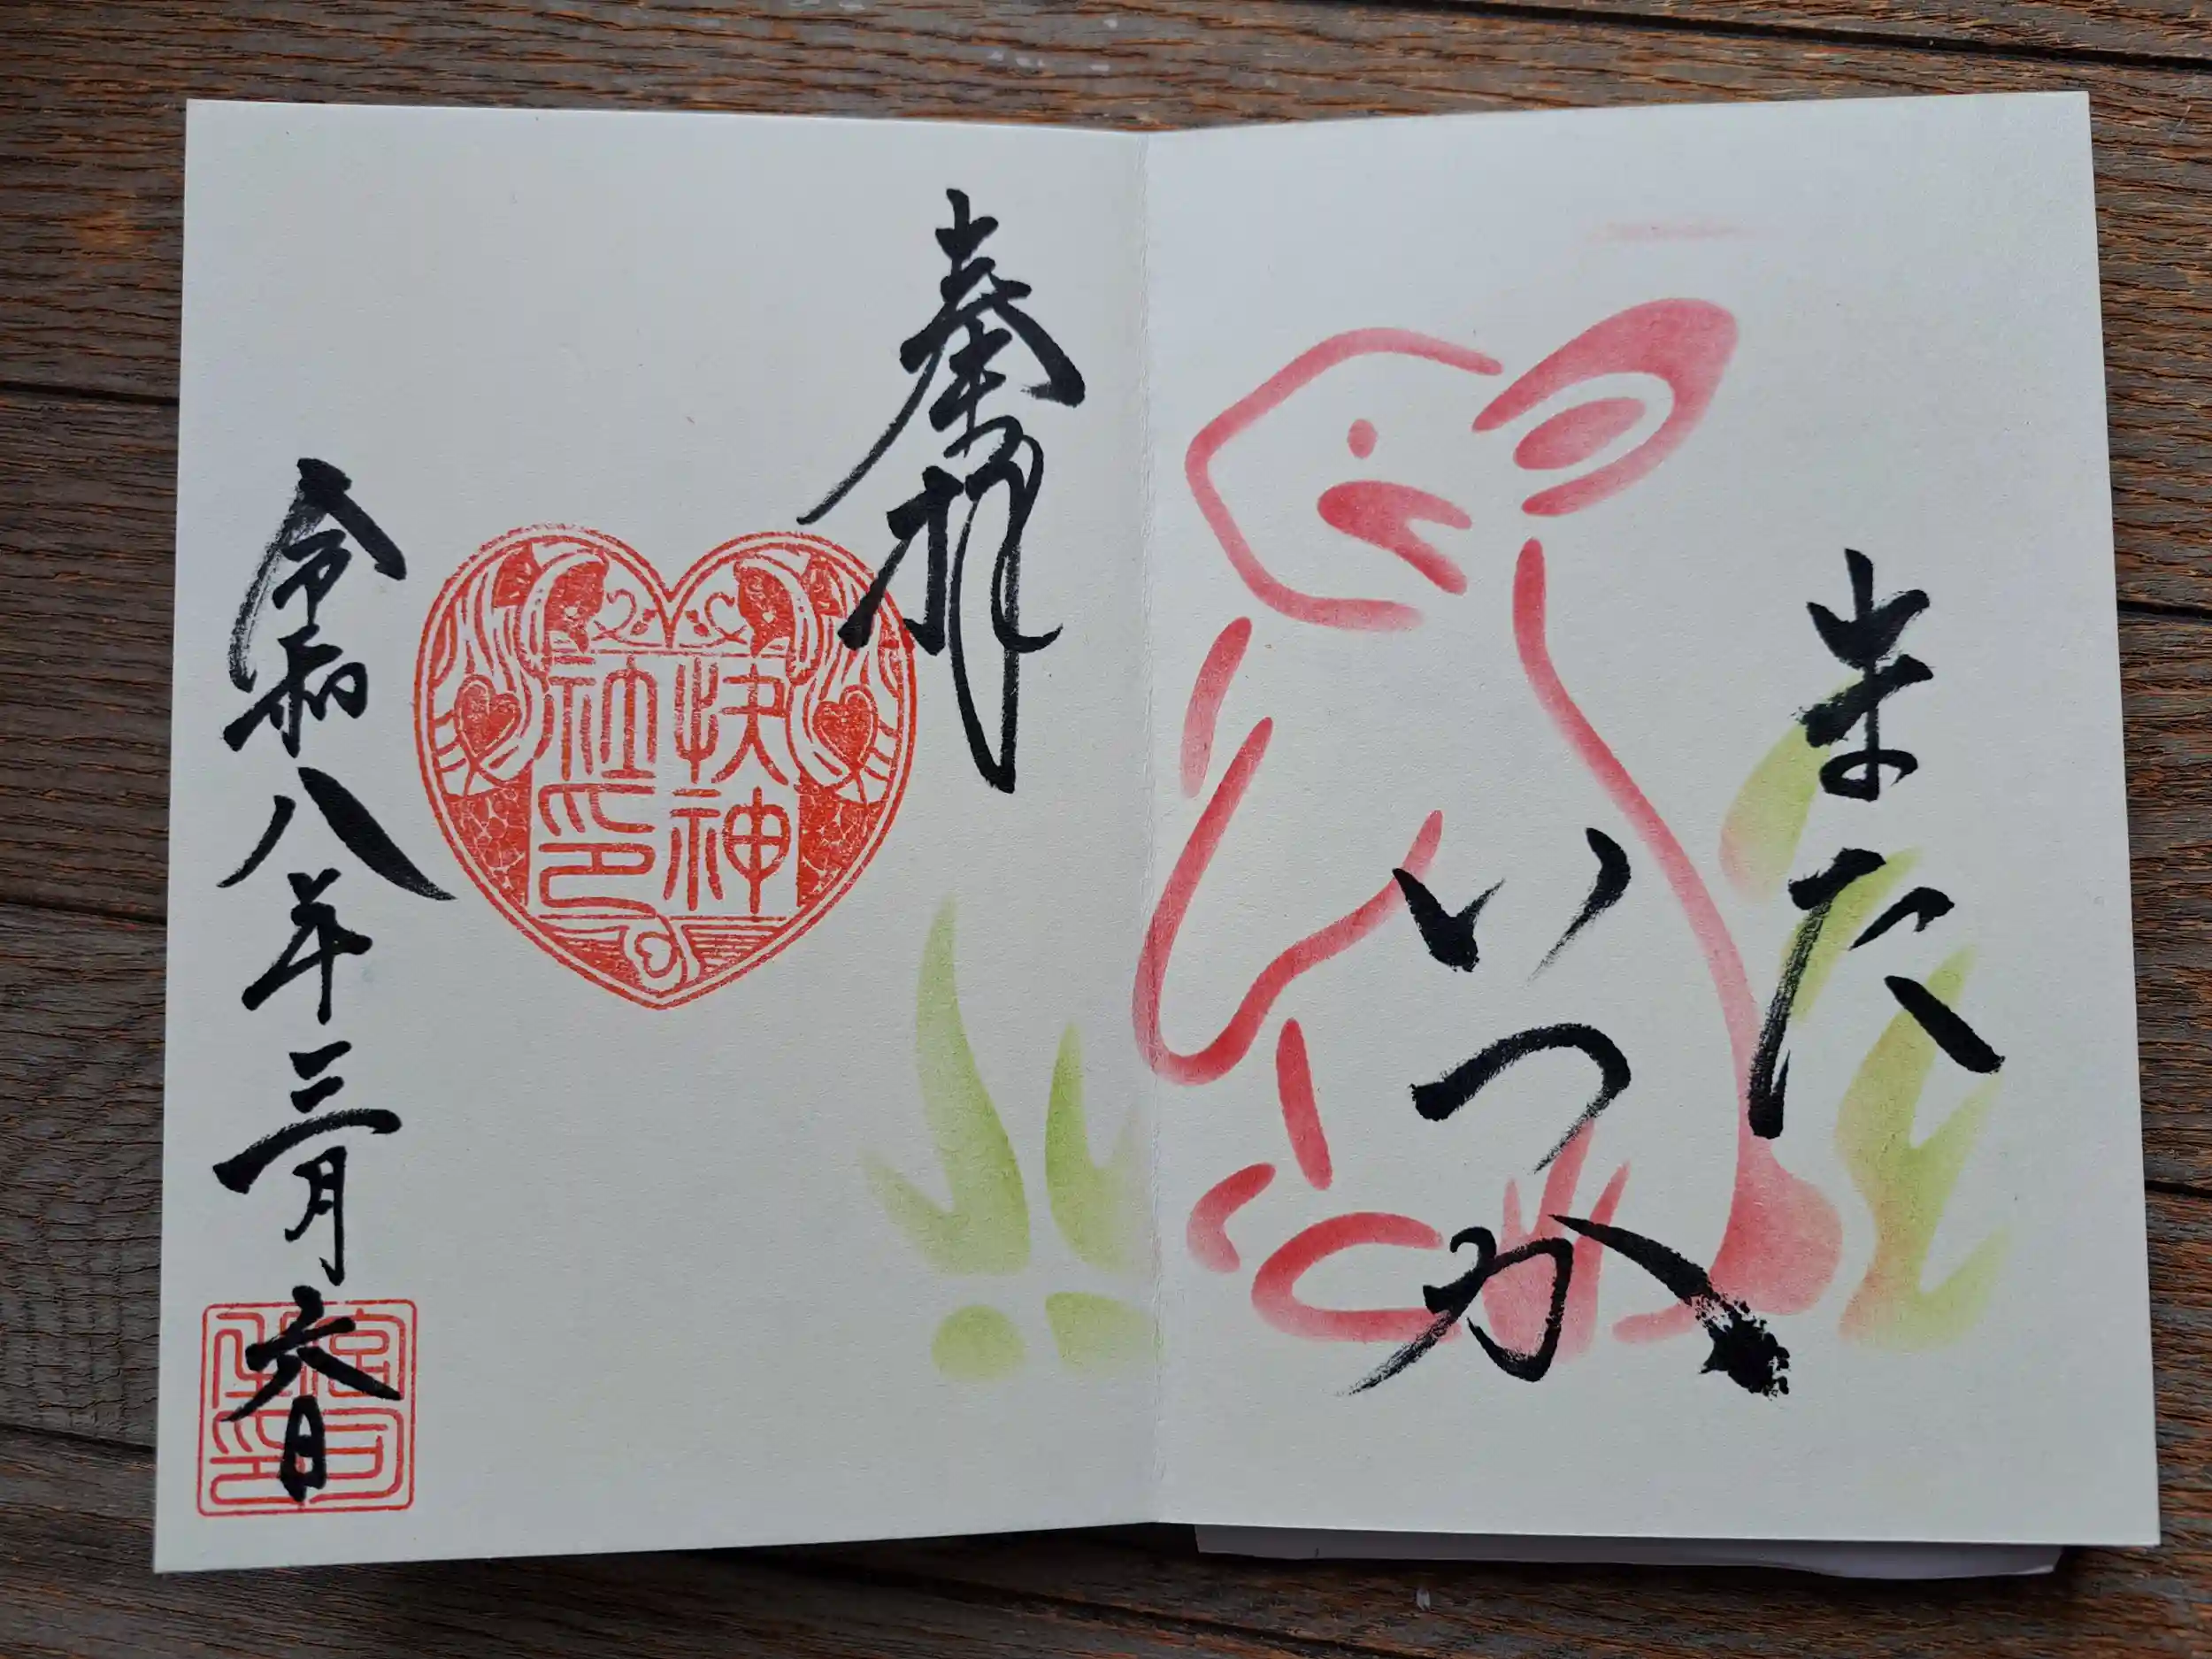 また
いつか
奉拝
快神
社印
令和八年三月六日